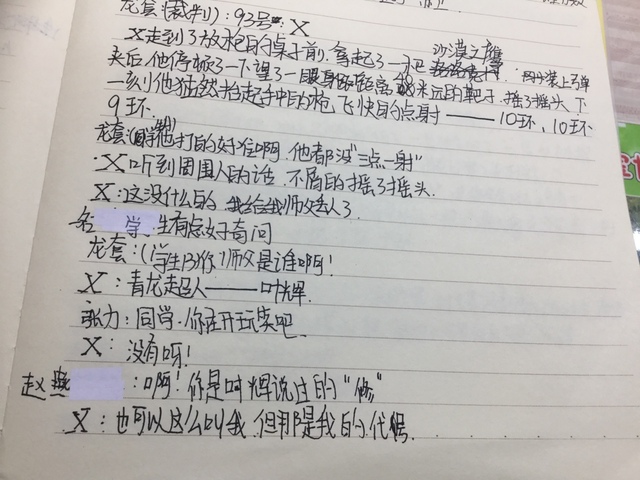 龙套(裁判):93号:X
X走到了放枪的桌子前,拿起了一把沙漠之鹰
夹后,他停顿了一下望了一眼身距离米远的靶子.摇了摇头,下
一刻他猛然抬起手中的枪,飞快的点射——10环,10环
9环.
龙套:他打的好准啊,他都没"三点一射"
X听到周围人的话,不屑的摇了摇头.
X:这没什么的,我给我师父丢人了
名学生有点好奇问
龙套:(学生B)你师父是谁啊!
X:青龙超人——叶辉.
张力:同学,你在开玩笑吧.
X:没有呀!
赵燕:啊!你是叶辉说过的"修"
X:也可以这么叫我.但那是我的代号.